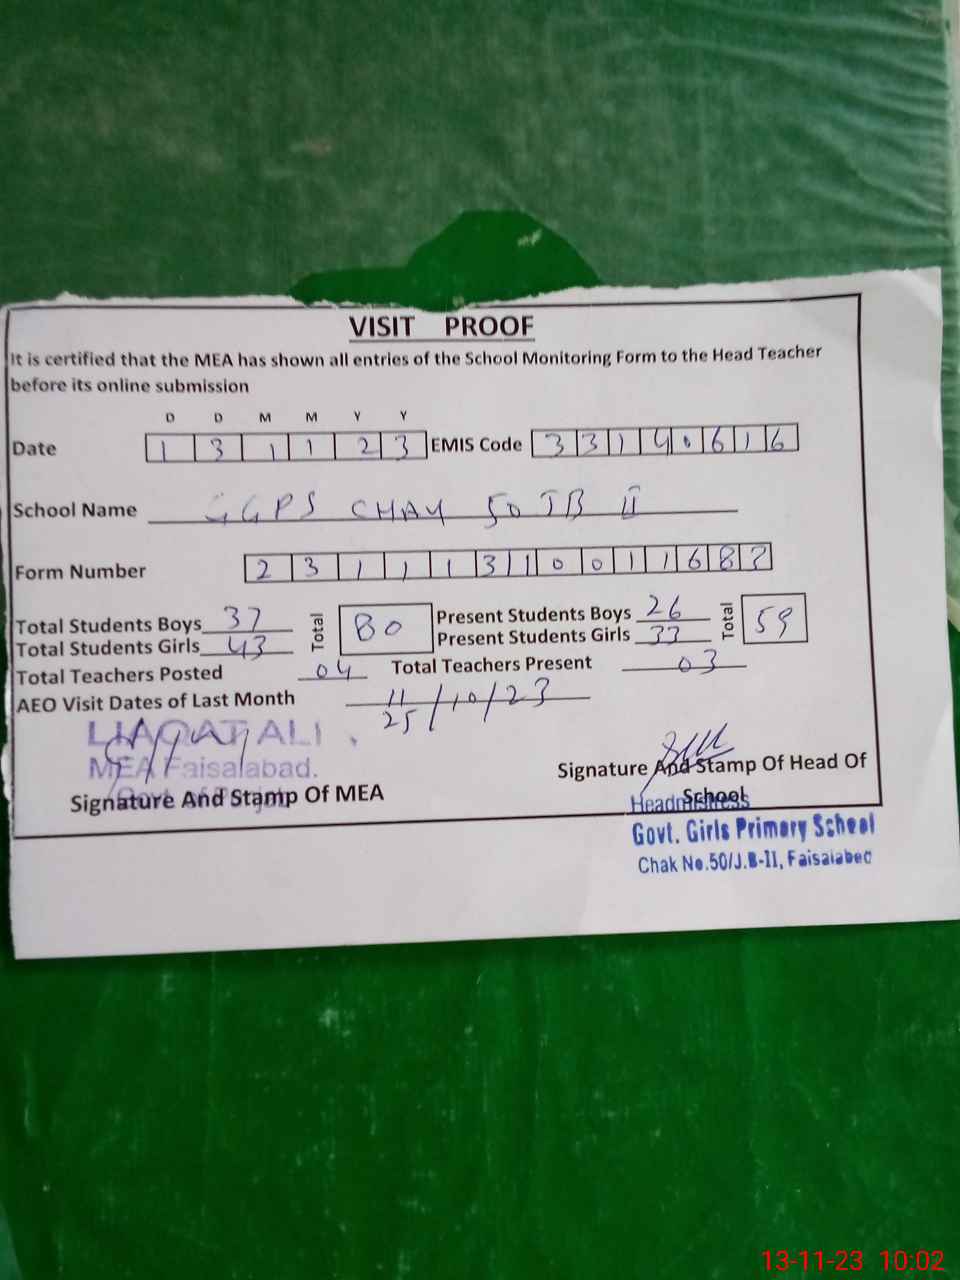 VISIT PROOF
It is certified that the MEA has shown all entries of the School Monitoring Form to the Head Teacher
before its online submission
D D M M Y Y
Date 1 3 1 1 2 3 EMIS Code 3 3 1 4 0 6 1 6
School Name GGPS CHAK 50 JB II
Form Number 2 3 1 1 1 3 1 0 0 1 1 6 8
Total Students Boys 37 Total 80 Present Students Boys 26 Total 59
Total Students Girls 43 Present Students Girls 33
Total Teachers Posted 04 Total Teachers Present 03
AEO Visit Dates of Last Month 11/10/23
25
LIAQAT ALI
MEA Faisalabad.
Signature And Stamp Of MEA
Signature And Stamp Of Head Of
School
Headmistress
Govt. Girls Primary School
Chak No.50/J.B-II, Faisalabad
13-11-23 10:02